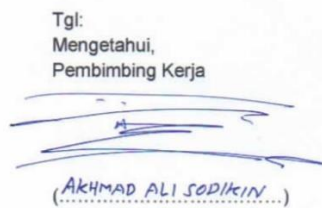 Tgl:
Mengetahui,
Pembimbing Kerja
(AKHMAD ALI SODIKIN)